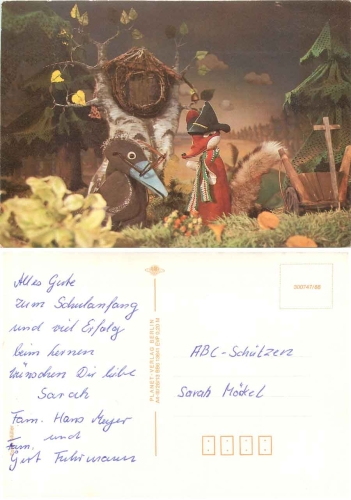 Alles Gute
zum Schulanfang
und viel Erfolg
beim Lernen
wünschen Dir liebe
Sarah
Fam. Hans Meyer
und
Fam.
Gert Fuhrmann
PLANET-VERLAG BERLIN
300747/86
ABC-Schützen
Sarah Möckel